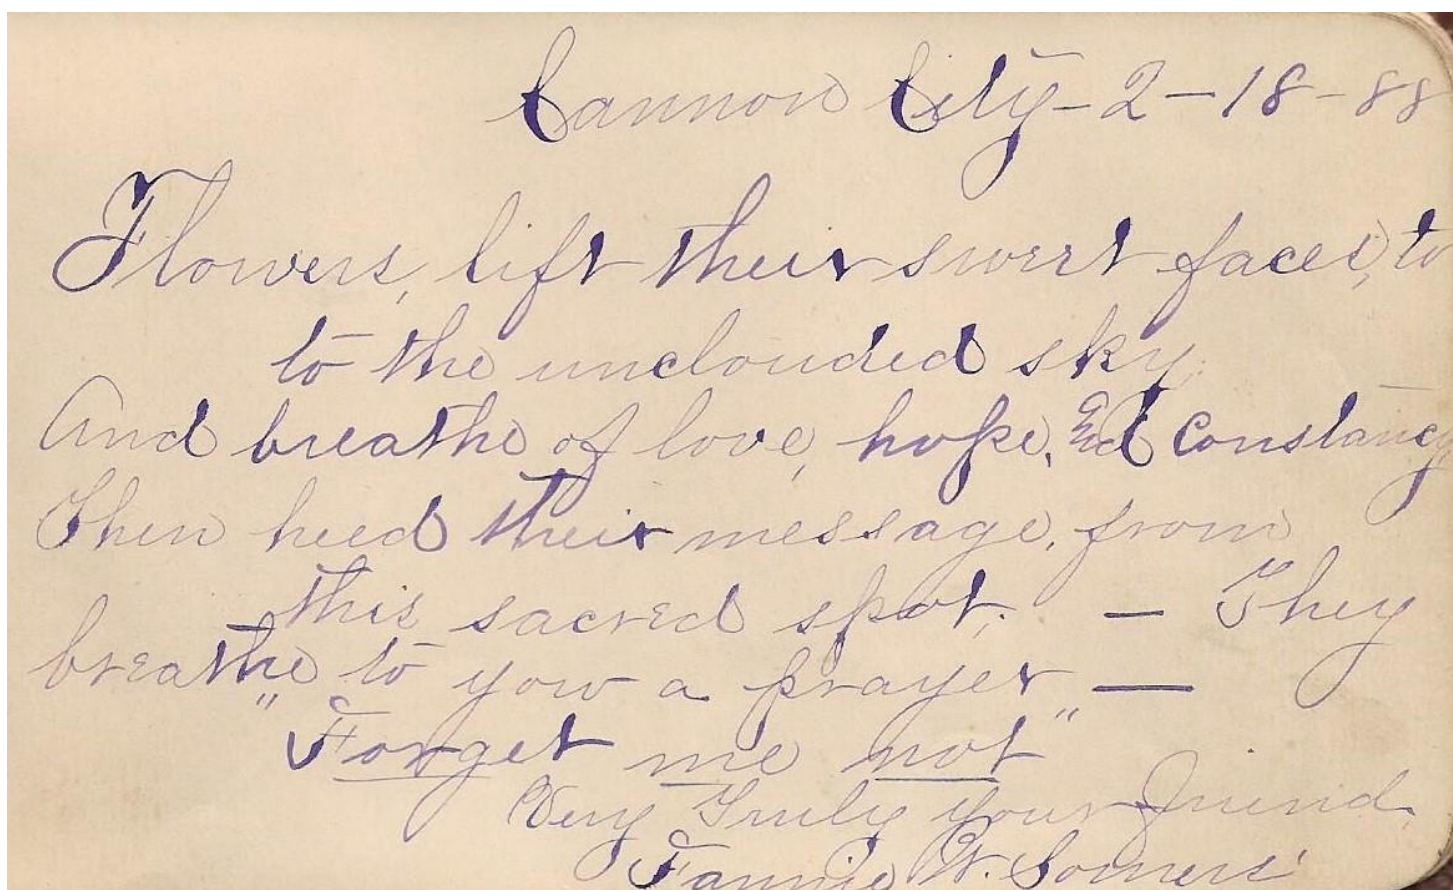 Cannon City - 2 - 18 - 88
Flowers, lift their sweet faces, to
to the unclouded sky,
And breathe of love, hope, and Constancy,
Then heed their message, from
this sacred spot, — They
breathe to you a prayer —
"Forget me not"
Very Truly your friend,
Fannie W. Somers